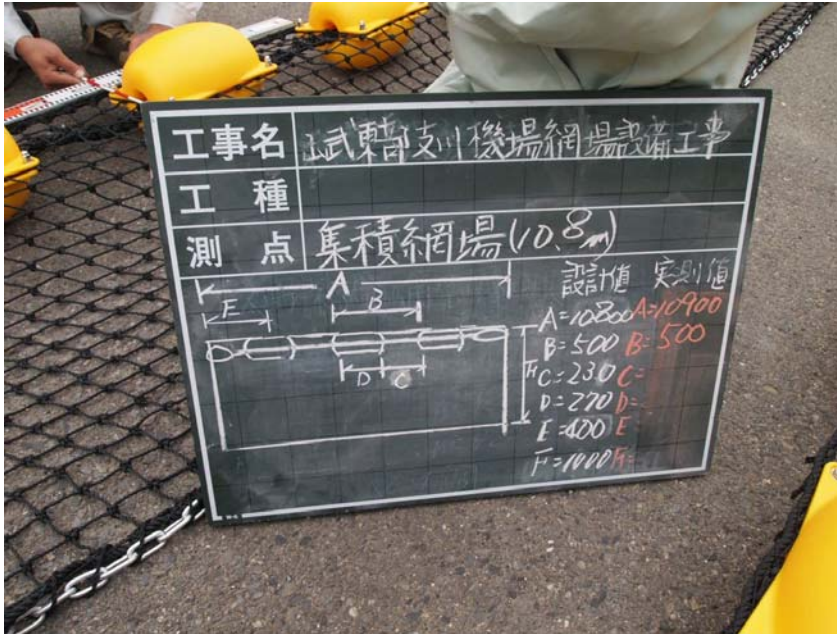 工事名 山武東部支川機場網場設備工事
工種
測点 集積網場(10.8m)
A
E
B
D C
F
設計値 実測値
A=10800 A=10900
B=500 B=500
C=230 C=
D=270 D=
E=400 E
F=1000 F=